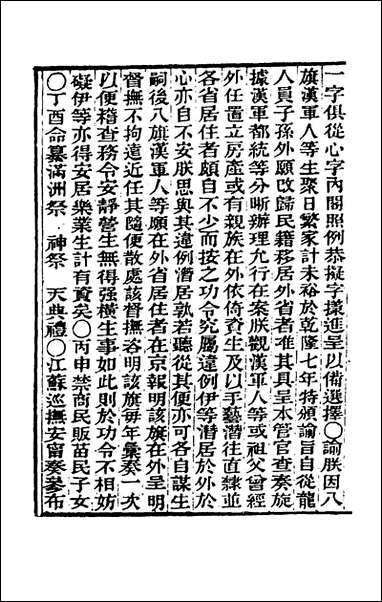 一字俱從心字內閣照例恭擬字樣進呈以備選擇〇諭朕因八
旗漢軍人等生聚日繁家計未裕於乾隆七年特頒諭旨自從龍
人員子孫外願改歸民籍移居外省者准其具呈本管官查奏旋
據漢軍都統等分晰辦理允行在案朕觀漢軍人等或祖父曾經
外任置立房產或有親族在外依倚資生及以手藝潛往直隷並
各省居住者頗自不少而按之功令究屬違例伊等潛居於外於
心亦自不安朕思與其違例潛居孰若聽從其便亦可各自謀生
嗣後八旗漢軍人等願在外省居住者在京報明該旗在外呈明
督撫不拘遠近任其隨便散處該督撫咨明該旗每年彙奏一次
以便稽查務令安靜營生無得強橫生事如此則於功令不相妨
礙伊等亦得安居樂業生計有資矣〇丙申禁商民販苗民子女
〇丁酉命纂滿洲祭 神祭 天典禮〇江蘇巡撫安甯奏蔘布